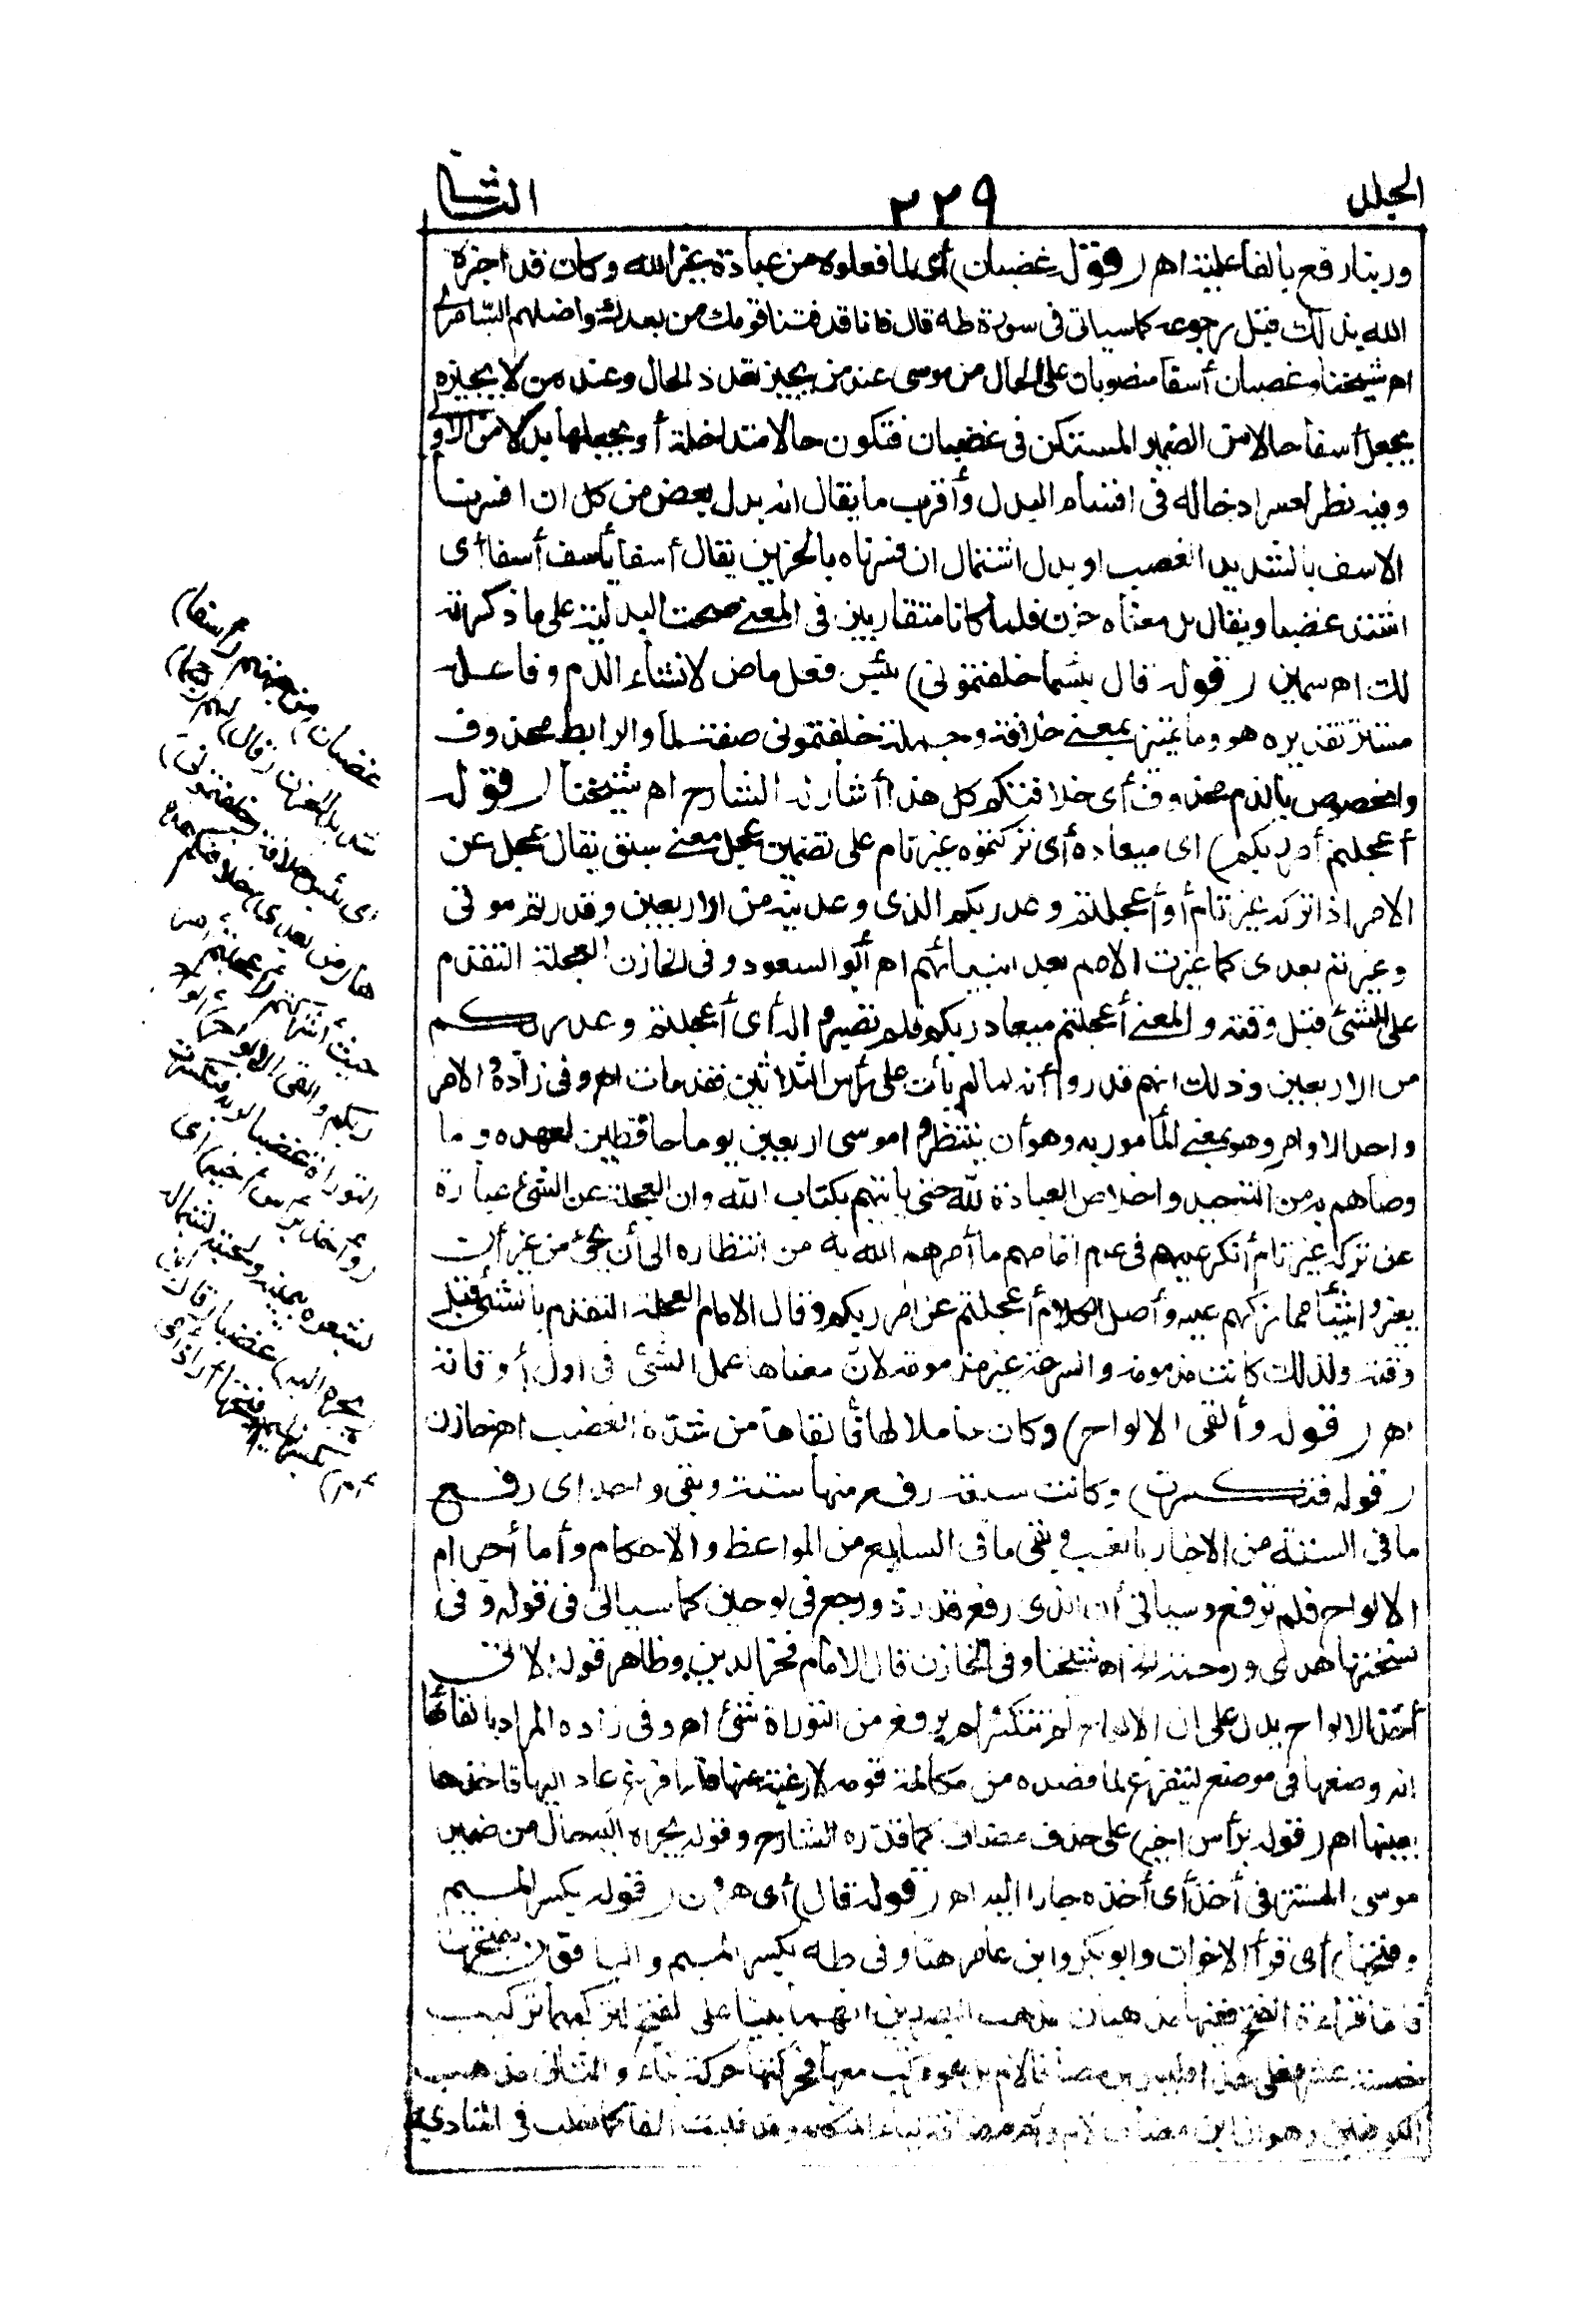 الجلد
٢٢٩
الثا
وربنا رفع بالفاعلية اهـ (قوله غضبان) أى لما فعلوه من عبادة غير الله وكان قد اخبره
الله بذلك قبل رجوعه كما سياتى فى سورة طه قال فانا قد فتنا قومك من بعدك واضلهم السامرى
اهـ شيخنا وغضبان أسفا منصوبان على الحال من موسى عند من يجيز تعدد الحال وعند من لا يجيزه
يجعل أسفا حالا من الضمير المستكن فى غضبان فتكون حالا متداخلة أو يجعلها بدلا من الاولى
وفيه نظر لعسر ادخاله فى اقسام البدل وأقرب ما يقال انه بدل بعض من كل ان فسرنا
الاسف بالشديد الغضب او بدل اشتمال ان فسرناه بالحزين يقال أسف يأسف أسفا أى
اشتد غضبا ويقال بل معناه حزن فلما كانا متقاربين فى المعنى صحت البدلية على ما ذكرته
لك اهـ سمين (قوله قال بئسما خلفتمونى) بئس فعل ماض لانشاء الذم وفاعله
مستتر تقديره هو وما تمييز بمعنى خلافة وجملة خلفتمونى صفة لما والرابط محذوف
والمخصوص بالذم محذوف أى خلافتكم كل هذا أشار له الشارح اهـ شيخنا (قوله
أعجلتم أمر ربكم) اى ميعاده أى تركتموه غير تام على تضمين عجل معنى سبق يقال عجل عن
الامر اذا تركه غير تام أو أعجلتم وعد ربكم الذى وعدنيه من الاربعين وقدرتم موتى
وغيرتم بعدى كما غيرت الامم بعد انبيائهم اهـ أبو السعود وفى الخازن العجلة التقدم
على الشئ قبل وقته والمعنى أعجلتم ميعاد ربكم فلم تصبروا له أى أعجلتم وعد ربكم
من الاربعين وذلك انهم قدروا أنه لما لم يأت على رأس الثلاثين فقد مات اهـ وفى زاده الامر
واحد الاوامر وهو بمعنى المأمور به وهو أن ينتظروا موسى اربعين يوما حافظين لعهده وما
وصاهم به من التوحيد واخلاص العبادة لله حتى يأتيهم بكتاب الله وان العجلة عن الشئ عبارة
عن تركه غير تام أنكر عليهم فى عدم اتمامهم ما أمرهم الله به من انتظاره الى أن يجئ من غير أن
يغيروا شيئا مما تركهم عليه وأصل الكلام أعجلتم عن امر ربكم وقال الامام العجلة التقدم بالشئ قبل
وقته ولذلك كانت مذمومة والسرعة غير مذمومة لان معناها عمل الشئ فى اول أوقاته
اهـ (قوله وألقى الالواح) وكان حاملا لها فألقاها من شدة الغضب اهـ خازن
(قوله فتكسرت) وكانت سبعة رفع منها ستة وبقى واحد اى رفع
ما فى الستة من الاخبار بالغيب وبقى ما فى السابع من المواعظ والاحكام وأما أجرام
الالواح فلم ترفع وسيأتى أن الذى رفع قد رد ورجع فى لوحين كما سيأتى فى قوله وفى
نسختها هدى ورحمة اهـ شيخنا وفى الخازن قال الامام فخر الدين وظاهر قوله الآتى
أخذ الالواح يدل على ان الالواح لم تتكسر ولم يرفع من التوراة شئ اهـ وفى زاده المراد بالقائها
انه وضعها فى موضع ليتفرغ لما قصده من مكالمة قومه لا رغبة عنها فلما فرغ عاد اليها فاخذها
بعينها اهـ (قوله برأس اخيه) على حذف مضاف كما قدره الشارح وقوله يجره اليه حال من ضمير
موسى المستتر فى أخذ أى أخذه جارا اليه اهـ (قوله قال) أى هرون (قوله بكسر الميم
وفتحها) أى قرأ الاخوان وابو بكر وابن عامر هنا وفى طه بكسر الميم والباقون بفتحها
فأما قراءة الفتح ففيها مذهبان مذهب البصريين انهما بنيا على الفتح لتركبهما تركيب
خمسة عشر فعلى هذا فليس ابن مضافا لام بل هو مركب معها فحركتها حركة بناء والثانى مذهب
الكوفيين وهو ان ابن مضاف لام وأم مضافة لياء المتكلم وقد قلبت الفا كما تقلب فى المنادى
غضبان) من جهتهم (أسفا)
شديد الحزن (قال) لهم (بئسما)
اى بئس خلافة (خلفتمونى)
ها (من بعدى) خلافتكم هذه
حيث أشركتم (أعجلتم أمر
ربكم وألقى الالواح) ألواح
التوراة غضبا لربه فتكسرت
(وأخذ برأس أخيه) أى
بشعره بيمينه ولحيته بشماله
(يجره اليه) غضبا (قال) ابن
أم) بكسر الميم وفتحها أراد أمى